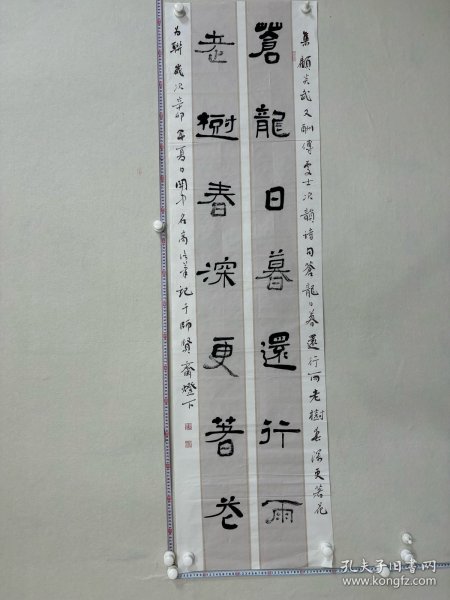 集顾炎武又酬傅處士次韻詩句蒼龍日暮還行雨老樹春深更著花
蒼龍日暮還行雨
老樹春深更著花
為聯歲次辛卯年夏日
記于師賢齋燈下
孔夫子旧书网
www.kongfz.com